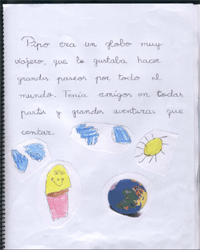 Pipo era un globo muy
viajero, que le gustaba hacer
grandes paseos por todo el
mundo. Tenía amigos en todas
partes y grandes aventuras que
contar.